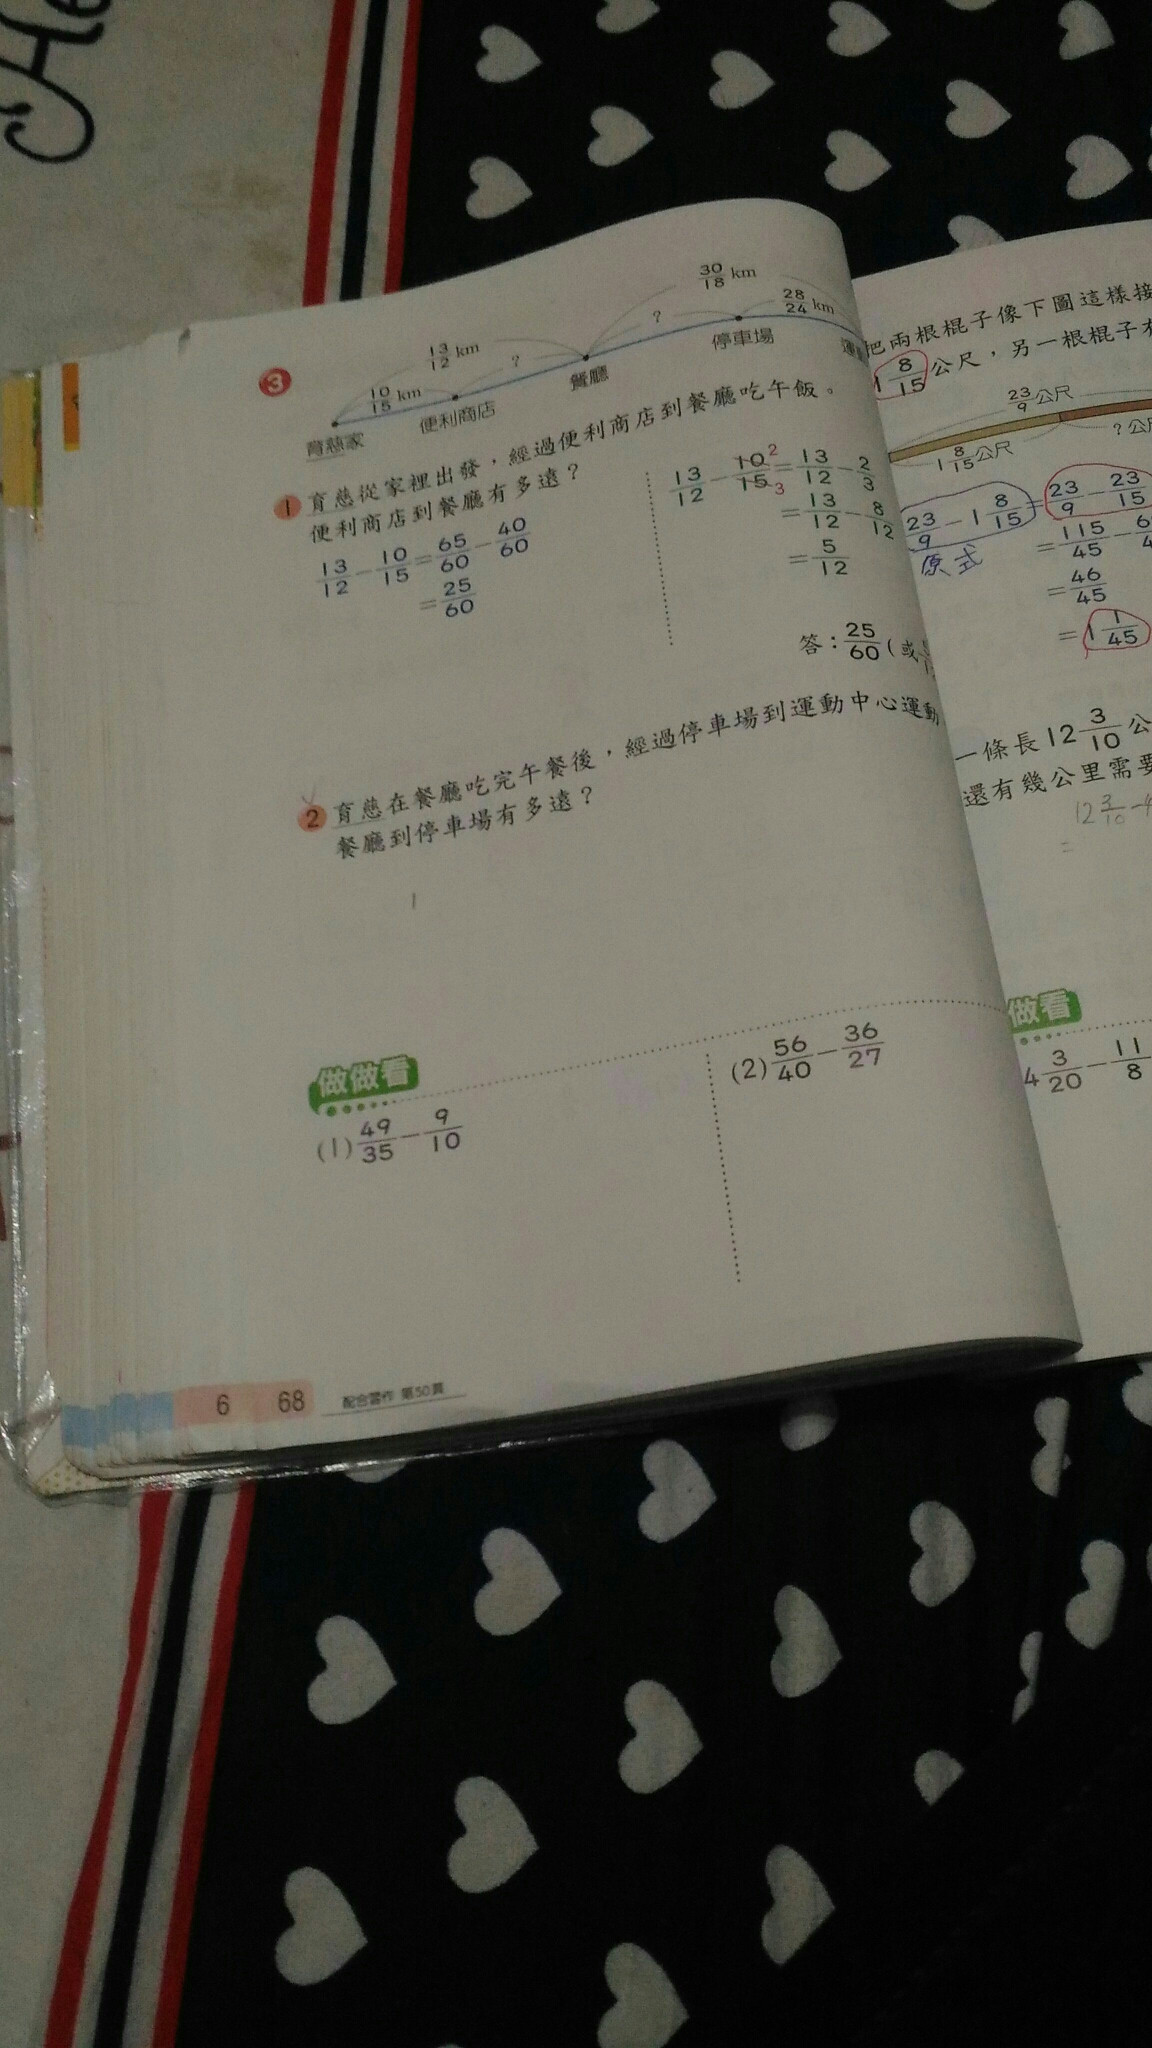 He
3
10/15 km
13/12 km
?
?
30/18 km
28/24 km
育慈家
便利商店
餐廳
停車場
運
1 育慈從家裡出發，經過便利商店到餐廳吃午飯。
便利商店到餐廳有多遠？
13/12 − 10/15 = 65/60 − 40/60
= 25/60
13/12 − 10/15 2 3 = 13/12 − 2/3
= 13/12 − 8/12
= 5/12
答：25/60（或
2 育慈在餐廳吃完午餐後，經過停車場到運動中心運動
餐廳到停車場有多遠？
做做看
(1) 49/35 − 9/10
(2) 56/40 − 36/27
6 68 配合習作 第50頁
把兩根棍子像下圖這樣接
1 8/15 公尺，另一根棍子
23/9 公尺
1 8/15 公尺
?公
23/9 − 1 8/15 = 23/9 − 23/15
原式
= 115/45 −
= 46/45
= 1 1/45
一條長12 3/10 公
還有幾公里需要
12 3/10 −
=
做看
4 3/20 − 11/8